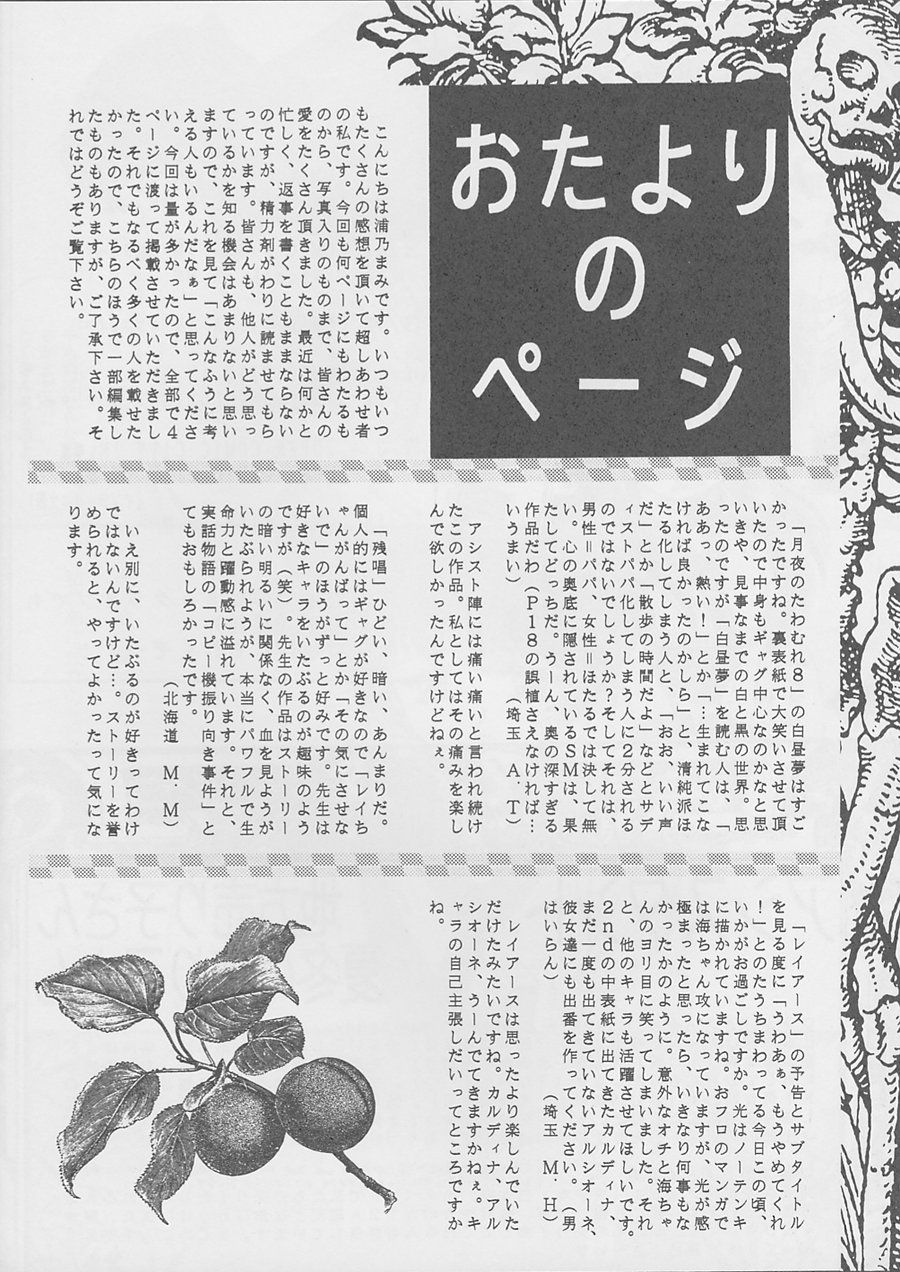 おたより
の
ページ
こんにちは浦乃まみです。いつもいつ
もたくさんの感想を頂いて超しあわせ者
の私です。今回も何ページにもわたるも
のから、写真入りのものまで、皆さんの
愛をたくさん頂きました。最近は何かと
忙しく、返事を書くこともままならない
のですが、精力剤がわりに読ませてもら
っています。皆さんも、他人がどう思っ
ているかを知る機会はあまりないと思い
ますので、これを見て「こんなふうに考
える人もいるんだなぁ」と思ってくださ
い。今回は量が多かったので、全部で4
ページに渡って掲載させていただきまし
た。それでもなるべく多くの人を載せた
かったので、こちらのほうで一部編集し
たものもありますが、ご了承下さい。そ
れではどうぞご覧下さい。
「月夜のたわむれ8」の白昼夢はすご
かったですね。裏表紙で大笑いさせて頂
いたので中身もギャグ中心なのかなと思
いきや、見事なまでの白と黒の世界。思
ったのですが「白昼夢」を読む人は、「
ああっ、熱い!」とか「…生まれてこな
ければ良かったのかしら」と、清純派ほ
たる化してしまう人と、「おお、いい声
だ」とか「散歩の時間だよ」などとサデ
ィストパパ化してしまう人に2分される
のではないでしょうか?そしてそれは、
男性=パパ、女性=ほたるでは決して無
い。心の奥底に隠されているSMは、果
たしてどっちだ。うーん、奥の深すぎる
作品だわ(P18の誤植さえなければ…
いうまい)　(埼玉　A.T)
アシスト陣には痛い痛いと言われ続け
たこの作品。私としてはその痛みを楽し
んで欲しかったんですけどねぇ。
「残唱」ひどい、暗い、あんまりだ。
個人的にはギャグが好きなので「レイち
ゃんがんばって」とか「その気にさせな
いで」のほうがずっと好みです。先生は
好きなキャラをいたぶるのが趣味のよう
ですが(笑)。先生の作品はストーリー
の暗い明るいに関係なく、血を見ようが
いたぶられようが、本当にパワフルで生
命力と躍動感に溢れています。それと、
実話物語の「コピー機振り向き事件」と
てもおもしろかったです。
(北海道　M.M)
いえ別に、いたぶるのが好きってわけ
ではないんですけど…。ストーリーを誉
められると、やってよかったって気にな
ります。
「レイアース」の予告とサブタイトル
を見る度に「うわあぁ、もうやめてくれ
!」とのたうちまわってる今日この頃、
いかがお過ごしですか。光はノーテンキ
に描かれていますね。おフロのマンガで
は海ちゃん攻になっていますが、光が感
極まったと思ったら、いきなり何事もな
かったかのように。意外なオチと海ちゃ
んのヨリ目に笑ってしまいました。それ
と、他のキャラも活躍させてほしいです。
2ndの中表紙に出てきたカルディナ、
まだ一度も出てきていないアルシオーネ、
彼女達にも出番を作ってください。(男
はいらん)　(埼玉　M.H)
レイアースは思ったより楽しんでいた
だけたみたいですね。カルディナ、アル
シオーネ、うーんでてきますかねぇ。キ
ャラの自己主張しだいってところですか
ね。